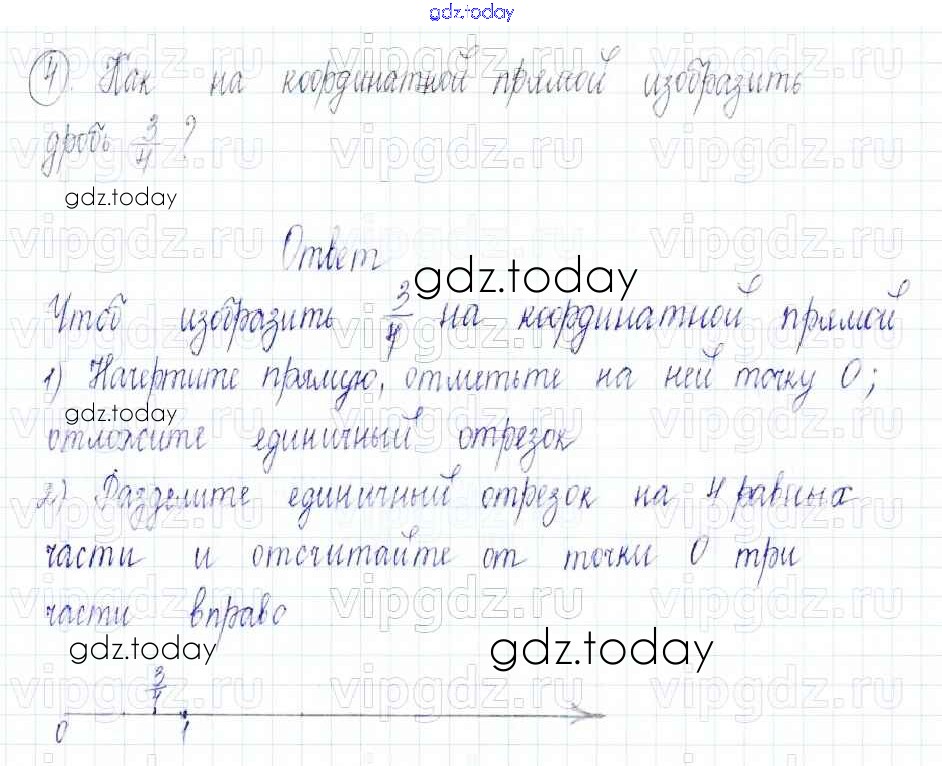 gdz.today
4). Как на координатной прямой изобразить
дробь 3/4 ?
gdz.today
Ответ
gdz.today
Чтоб изобразить 3/4 на координатной прямой
1) Начертите прямую, отметьте на ней точку 0;
gdz.today
отложите единичный отрезок
2) Разделите единичный отрезок на 4 равных
части и отсчитайте от точки 0 три
части вправо
gdz.today gdz.today
3/4
0 1
vipgdz.ru